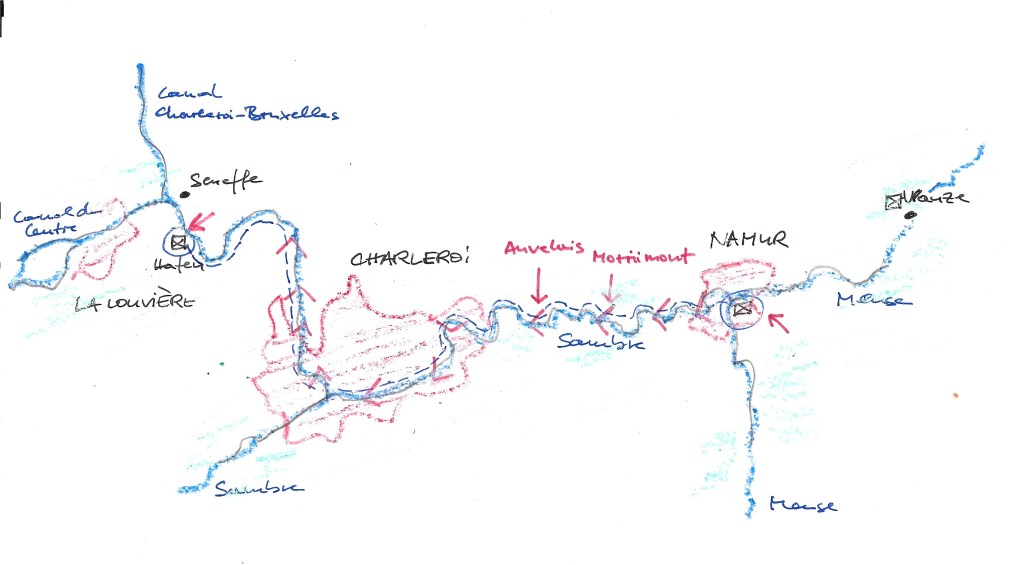 Canal
Charleroi-Bruxelles
Seneffe
Canal du
Centre
Hafen
LA LOUVIÈRE
CHARLEROI
Auvelais
Mornimont
NAMUR
Sambre
Meuse
Sambre
Meuse